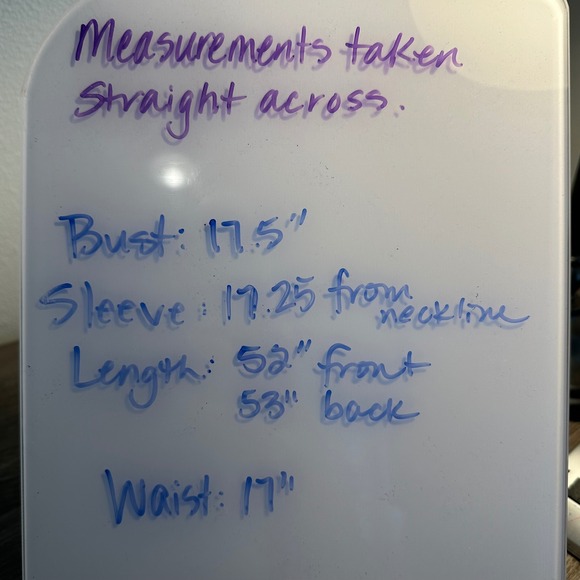 Measurements taken
Straight across.
Bust: 17.5"
Sleeve: 17.25 from neckline
Length: 52" front
53" back
Waist: 17"